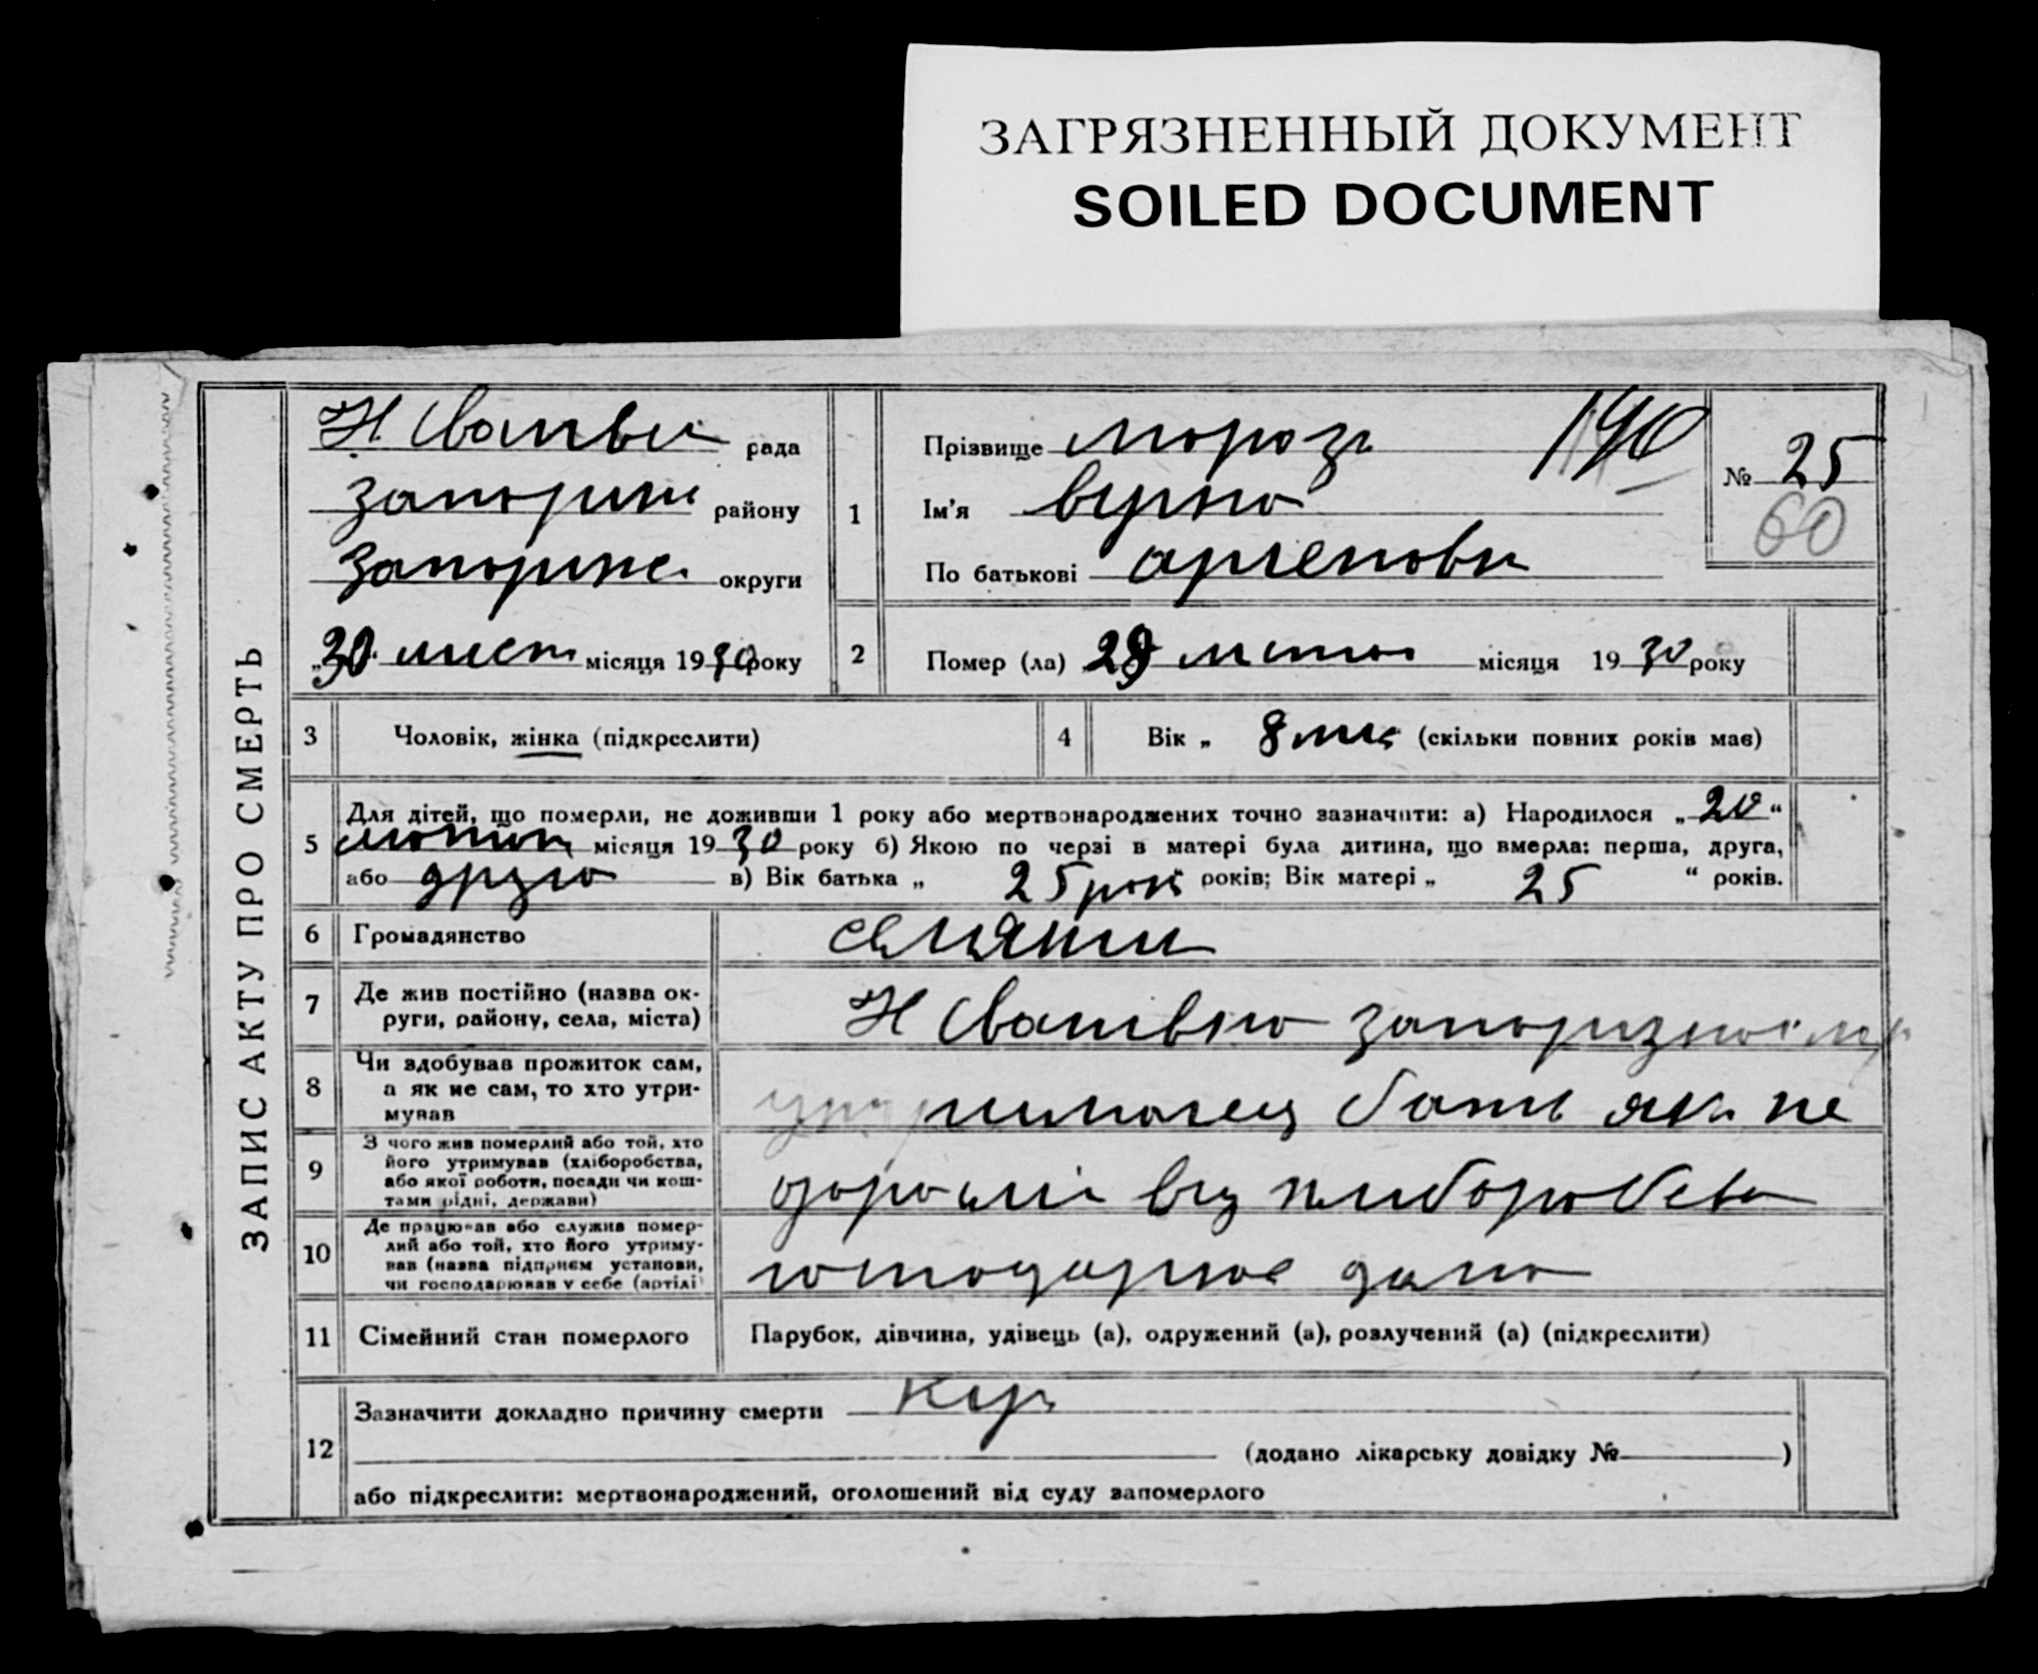 ЗАГРЯЗНЕННЫЙ ДОКУМЕНТ
SOILED DOCUMENT
ЗАПИС АКТУ ПРО СМЕРТЬ
Н рада
району
округи
„30 місяця 1930 року
1
Прізвище Мороз 190
Ім'я
По батькові
№ 25
60
2
Помер (ла) 29 місяця 1930 року
3 Чоловік, жінка (підкреслити)
4 Вік „ 8 (скільки повних років має)
5 Для дітей, що померли, не доживши 1 року або мертвонароджених точно зазначити: а) Народилося „ 20 “
місяця 1930 року б) Якою по черзі в матері була дитина, що вмерла: перша, друга,
або друга в) Вік батька „ 25 рок років; Вік матері „ 25 “ років.
6 Громадянство селяни
7 Де жив постійно (назва ок-
руги, району, села, міста)
Н
8 Чи здобував прожиток сам,
а як не сам, то хто утри-
мував
батьк як не
9 З чого жив померлий або той, хто
його утримував (хліборобства,
або якої роботи, посади чи кош-
тами рідні, держави)
від хлиборобства
10 Де працював або служив помер-
лий або той, хто його утриму-
вав (назва підприєм установи,
чи господарював у себе (артілі)
11 Сімейний стан померлого Парубок, дівчина, удівець (а), одружений (а), розлучений (а) (підкреслити)
12 Зазначити докладно причину смерти кір
(додано лікарську довідку № )
або підкреслити: мертвонароджений, оголошений від суду запомерлого